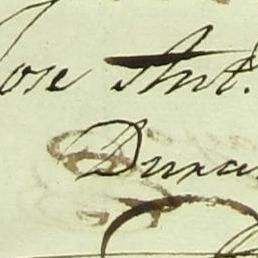 Jose Ant.
Duran